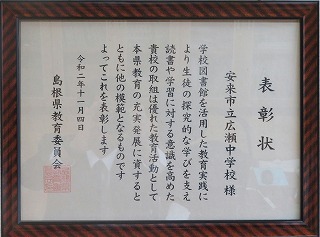 表彰状
安来市立広瀬中学校 様
学校図書館を活用した教育実践に
より生徒の探究的な学びを支え
読書や学習に対する意識を高めた
貴校の取組は優れた教育活動として
本県教育の充実発展に資すると
ともに他の模範となるものです
よってこれを表彰します
令和二年十一月四日
島根県教育委員会